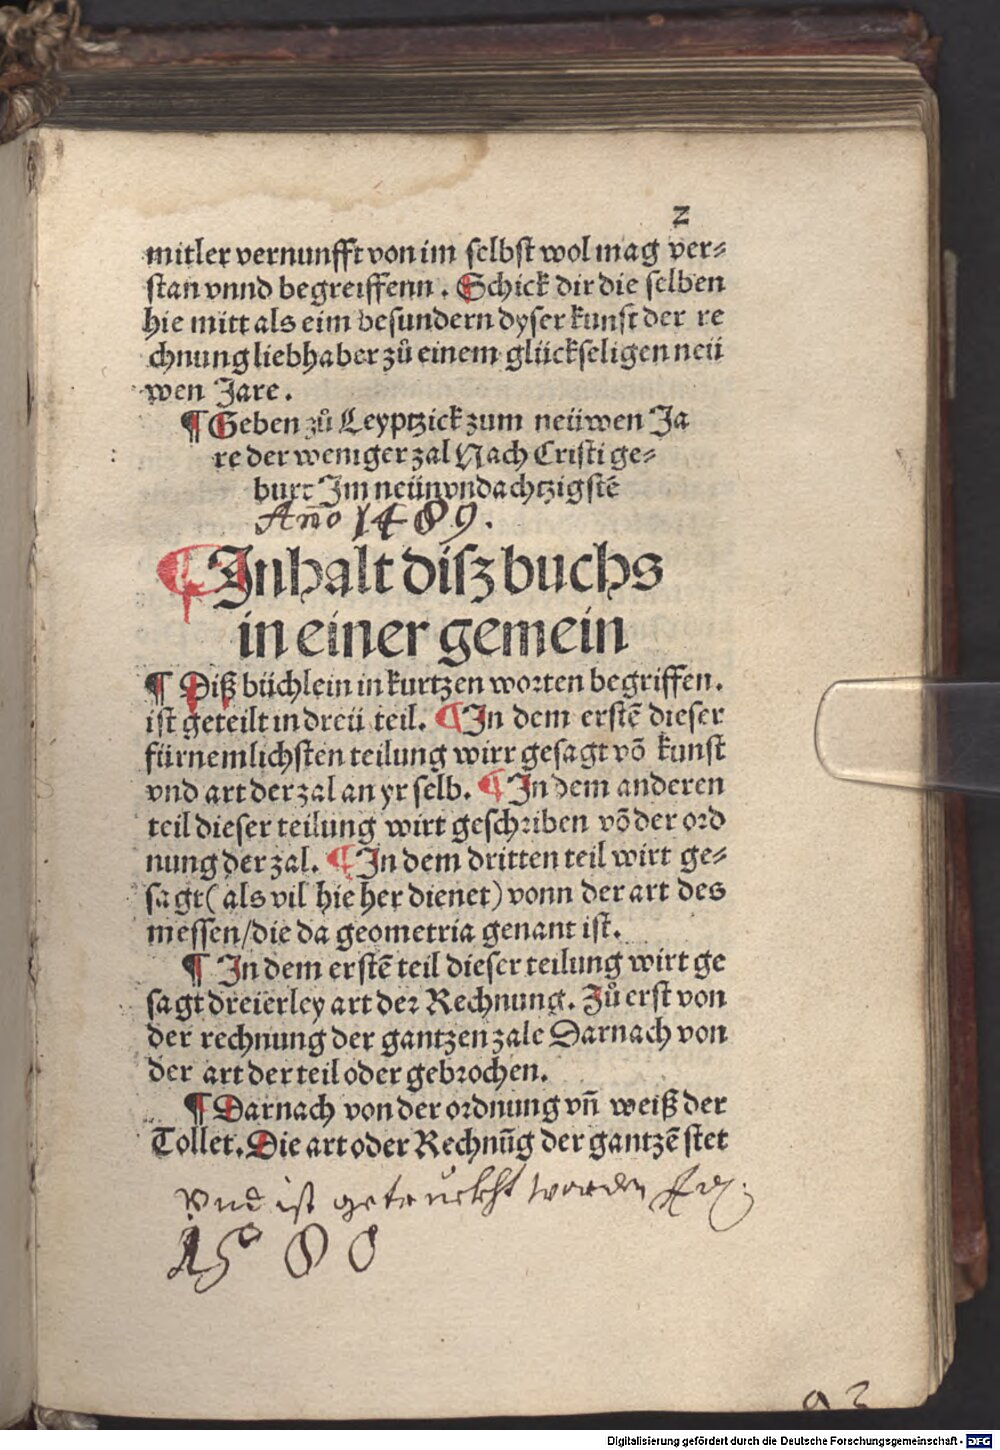 2
mitler vernunfft von im selbst wol mag ver⸗
stan vnnd begreiffenn. Schick dir die selben
hie mitt als eim besundern dyser kunst der re
chnung liebhaber zů einem glückseligen neü
wen Jare.
¶ Geben zů Leyptzick zum neüwen Ja
re der weniger zal Nach Cristi ge⸗
burt Im neün vnd achtzigstē
Año 1489.
¶ Inhalt disz buchs
in einer gemein
¶ Diß büchlein in kurtzen worten begriffen.
ist geteilt in dreü teil. ¶ In dem erstē dieser
fürnemlichsten teilung wirr gesagt vō kunst
vnd art der zal an yr selb. ¶ In dem anderen
teil dieser teilung wirt geschriben vō der ord
nung der zal. ¶ In dem dritten teil wirt ge⸗
sagt (als vil hie her dienet) vonn der art des
messen/die da geometria genant ist.
¶ In dem erstē teil dieser teilung wirt ge
sagt dreierley art der Rechnung. Zů erst von
der rechnung der gantzen zale Darnach von
der art der teil oder gebrochen.
¶ Darnach von der ordnung vñ weiß der
Tollet. Die art oder Rechnūg der gantzē stet
Vnd ist getruckht worden
1500
Digitalisierung gefördert durch die Deutsche Forschungsgemeinschaft - DFG